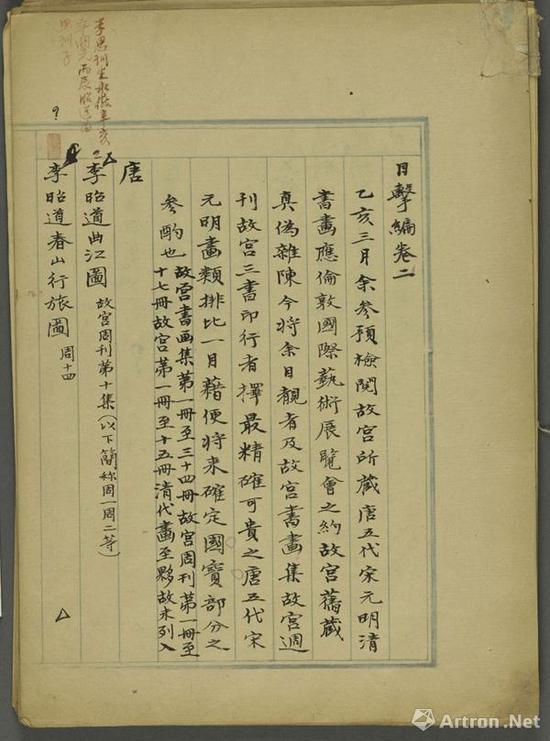 目擊編卷二
乙亥三月余參預檢閱故宮所藏唐五代宋元明清
書畫應倫敦國際藝術展覽會之約故宮舊藏
真偽雜陳今將余目觀者及故宮書畫集故宮週
刊故宮三書印行者擇最精確可貴之唐五代宋
元明畫類排比一目藉便將來確定國寶部分之
參酌也故宮書畫集第一冊至三十四冊故宮周刊第一冊至
十七冊故宮第一冊至十五冊清代畫至夥故未列入
唐
李昭道曲江圖 故宮周刊第十集(以下簡称周一周二等)
李昭道春山行旅圖 周十四
?
Artron.Net